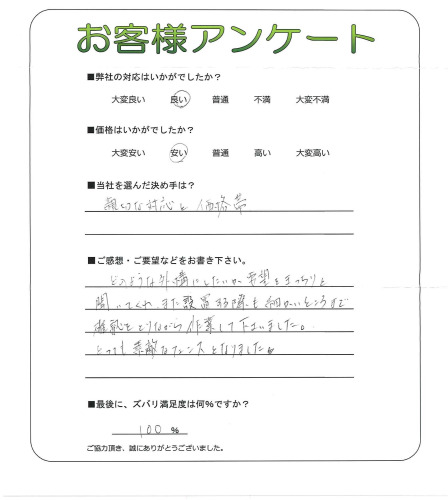 お客様アンケート
■弊社の対応はいかがでしたか?
大変良い 良い 普通 不満 大変不満
■価格はいかがでしたか?
大変安い 安い 普通 高い 大変高い
■当社を選んだ決め手は?
親切な対応と価格帯
■ご感想・ご要望などをお書き下さい。
どのような外構にしたいか希望をきっちりと
聞いてくれ、また設置する際も細かいところまで
確認をとりながら作業して下さいました。
とっても素敵なフェンスとなりました。
■最後に、ズバリ満足度は何%ですか?
100 %
ご協力頂き、誠にありがとうございました。